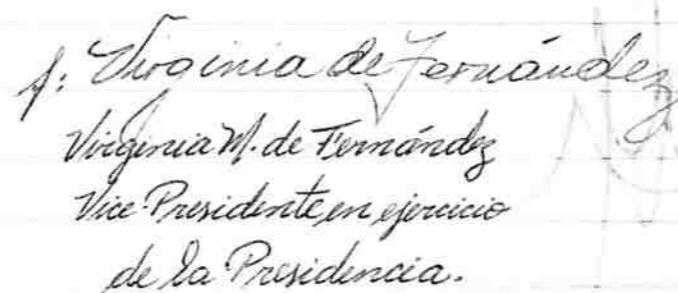 f: Virginia de Fernández
Virginia M. de Fernández
Vice-Presidente en ejercicio
de la Presidencia.